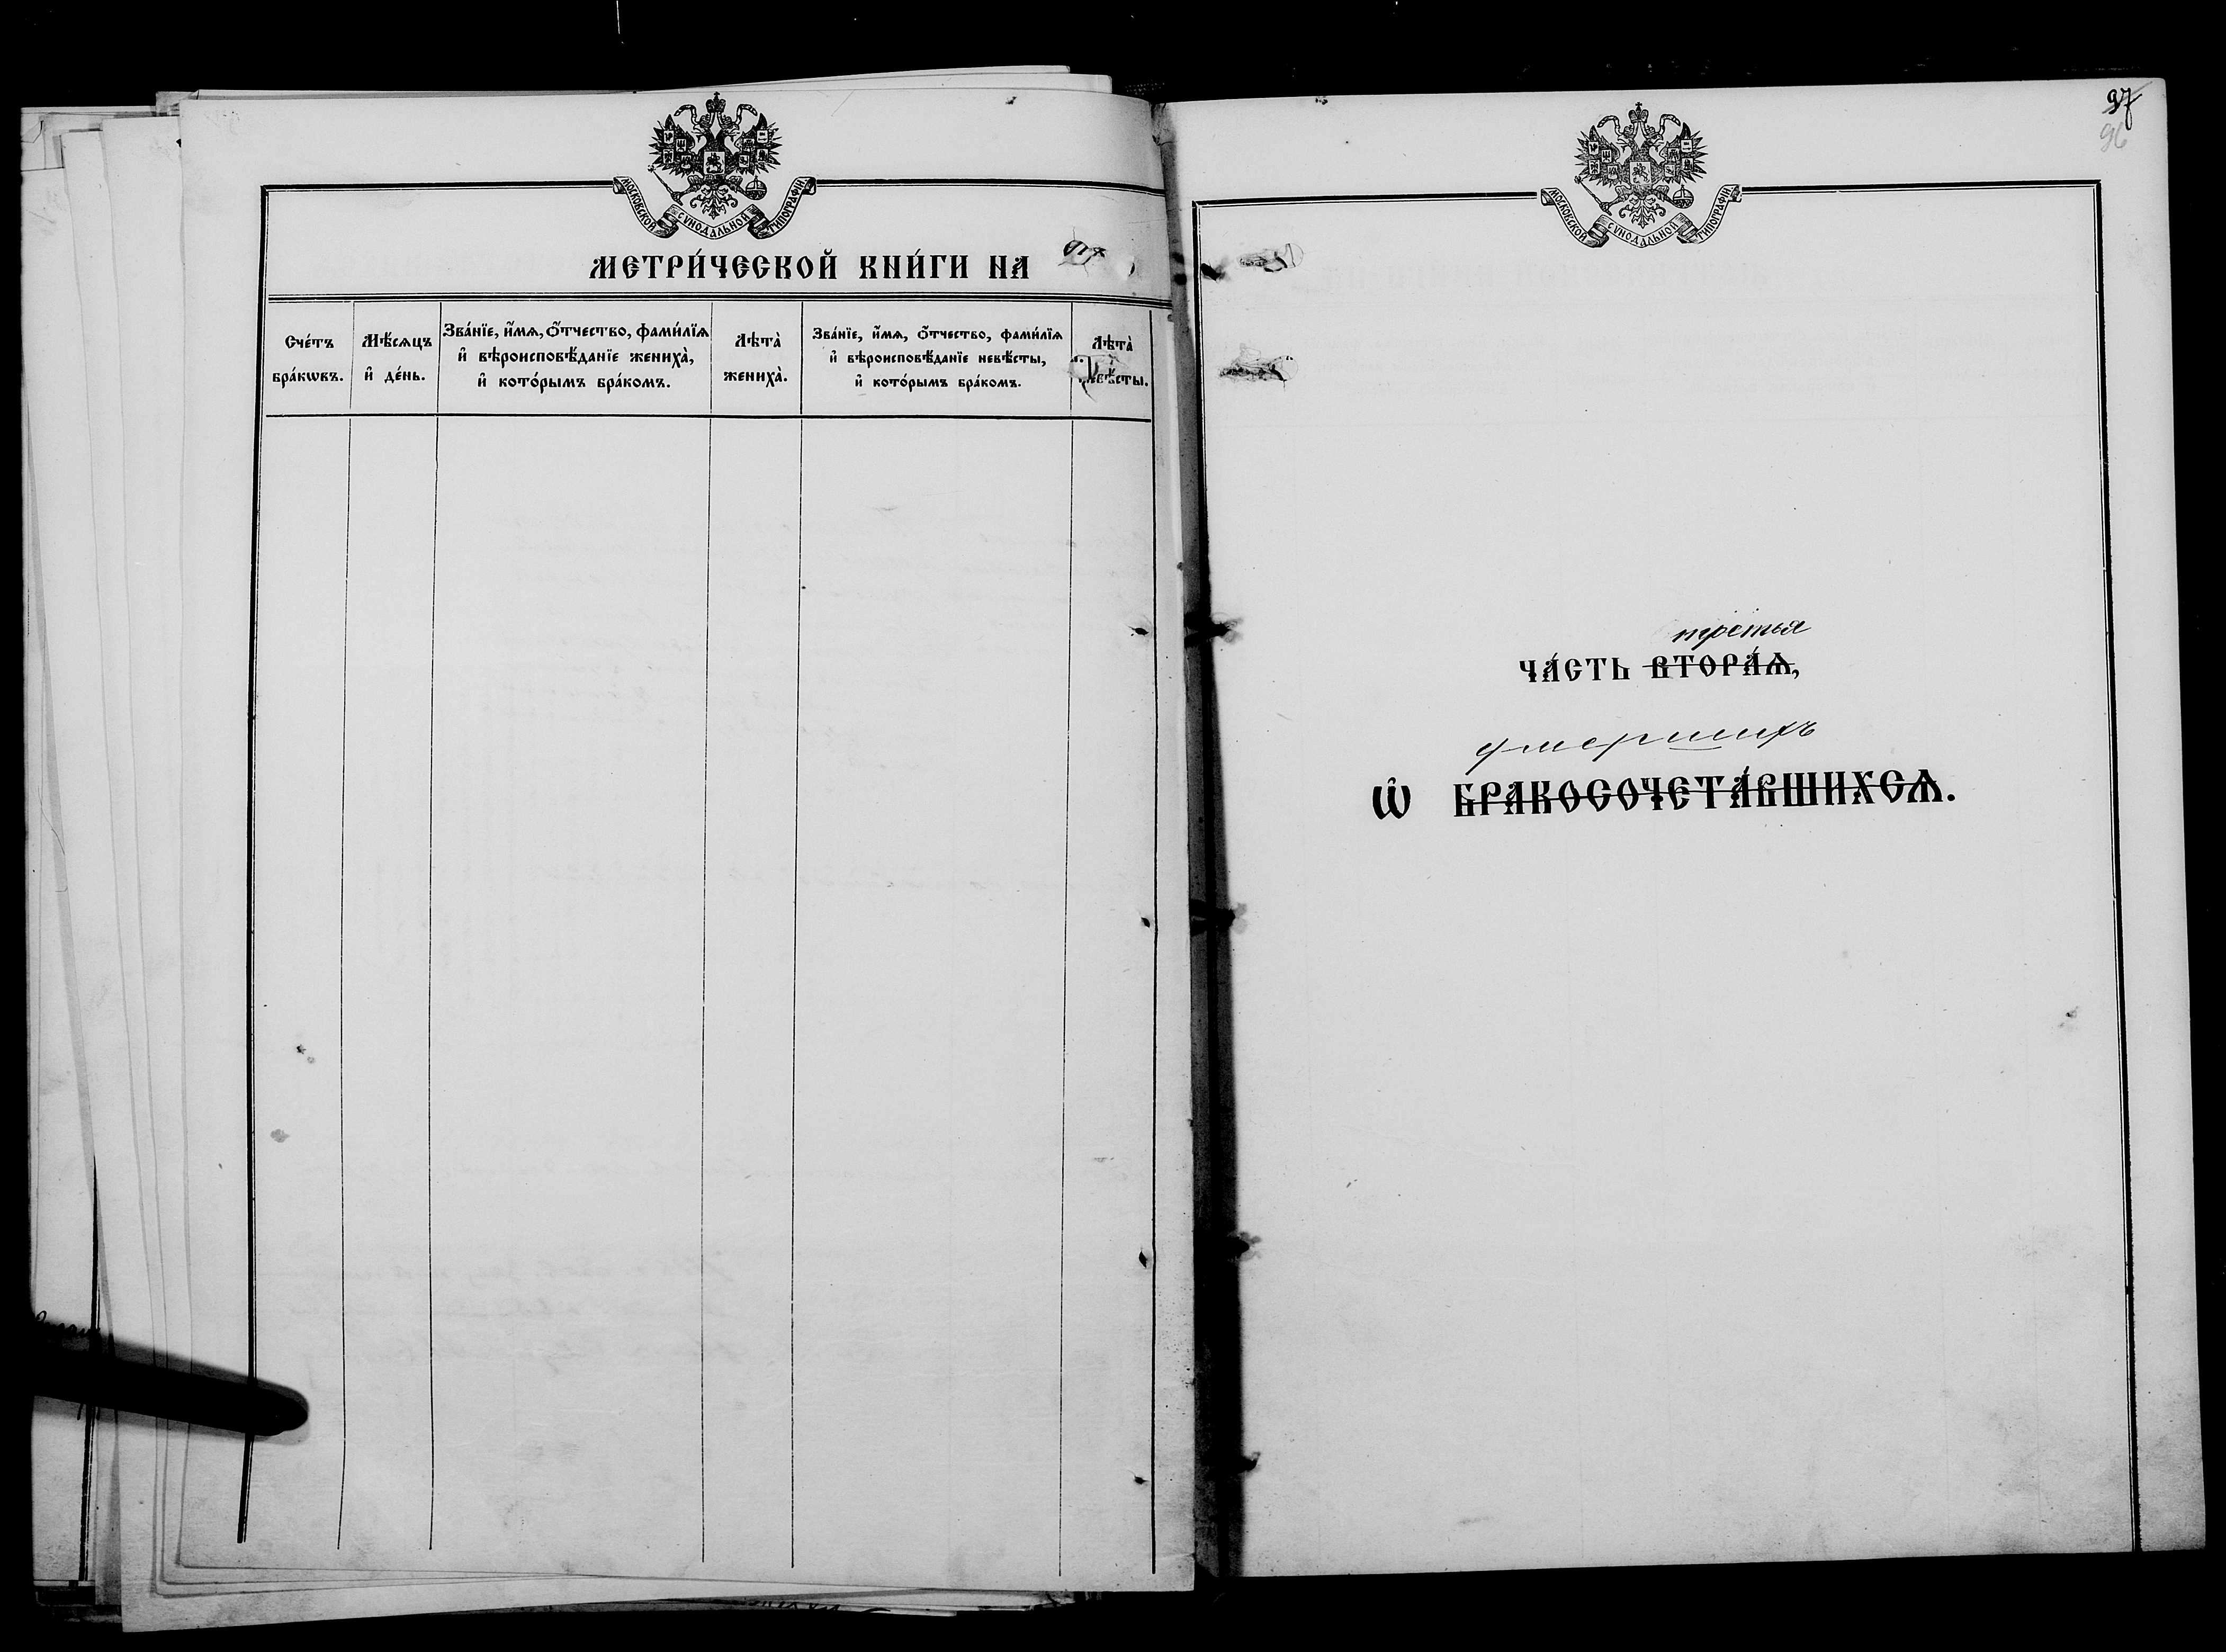 МОСКОВСКОЙ СѴНОДАЛЬНОЙ ТИПОГРАФІИ
МЕТРИ́ЧЕСКОЙ КНИ́ГИ НА
Сче́тъ бра́кѡвъ.
Мѣ́сѧцъ и҆ де́нь.
Зва́нїе, и҆́мѧ, ѻ҆́тчество, фами́лїѧ
и҆ вѣроисповѣ́данїе жениха̀,
и҆ кото́рымъ бра́комъ.
Лѣта̀ жениха̀.
Зва́нїе, и҆́мѧ, ѻ҆́тчество, фами́лїѧ
и҆ вѣроисповѣ́данїе невѣ́сты,
и҆ кото́рымъ бра́комъ.
Лѣта̀
97
96
МОСКОВСКОЙ СѴНОДАЛЬНОЙ ТИПОГРАФІИ
третья
ЧА́СТЬ ВТОРА́Ѧ,
умершихъ
Ѡ҆ БРАКОСОЧЕТА́ВШИХСѦ.